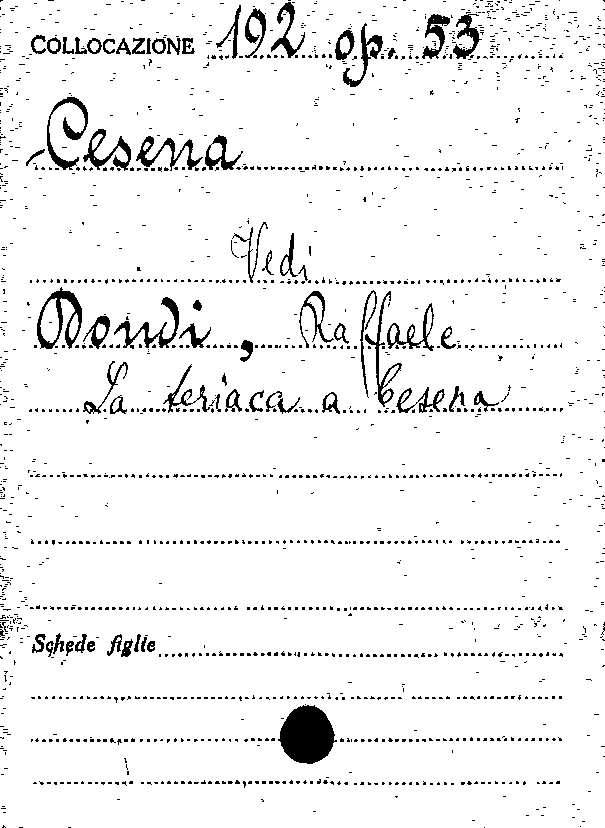 COLLOCAZIONE 192 op. 53
Cesena
Vedi
Dondi, Raffaele
La teriaca a Cesena
Schede figlie